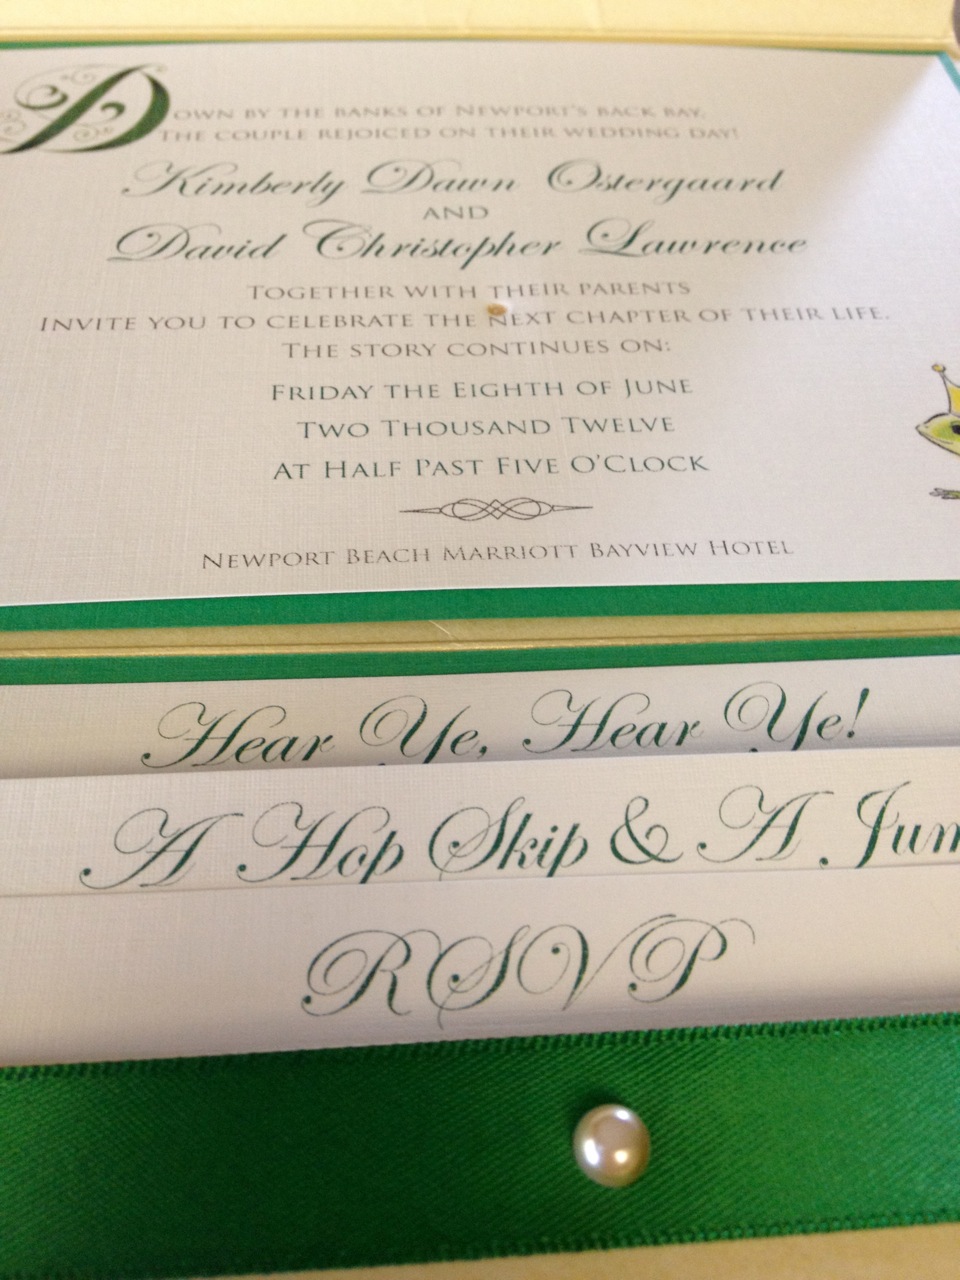 Down by the banks of Newport's Back Bay,
the couple rejoiced on their wedding day!
Kimberly Dawn Ostergaard
and
David Christopher Lawrence
Together with their parents
invite you to celebrate the next chapter of their life.
The story continues on:
Friday the Eighth of June
Two Thousand Twelve
at Half Past Five O'Clock
Newport Beach Marriott Bayview Hotel
Hear Ye, Hear Ye!
A Hop Skip & A Jum
RSVP